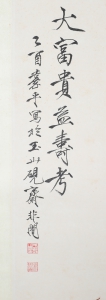 大富貴益壽考
乙酉慕平寫於玉山硯齋非閣